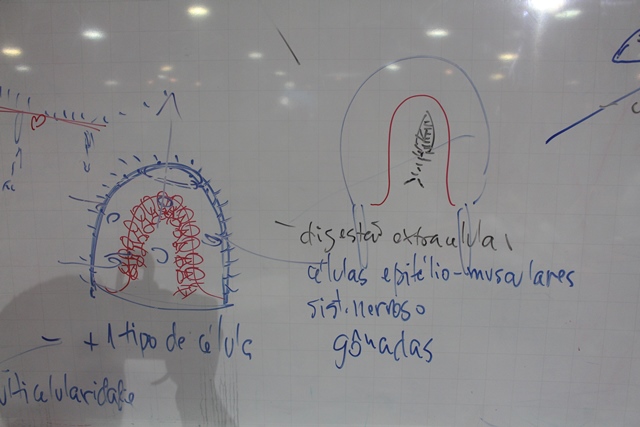 - digestão extracelular
células epitélio-musculares
sist. nervoso
gônadas
- + 1 tipo de célula
ulticelularidade